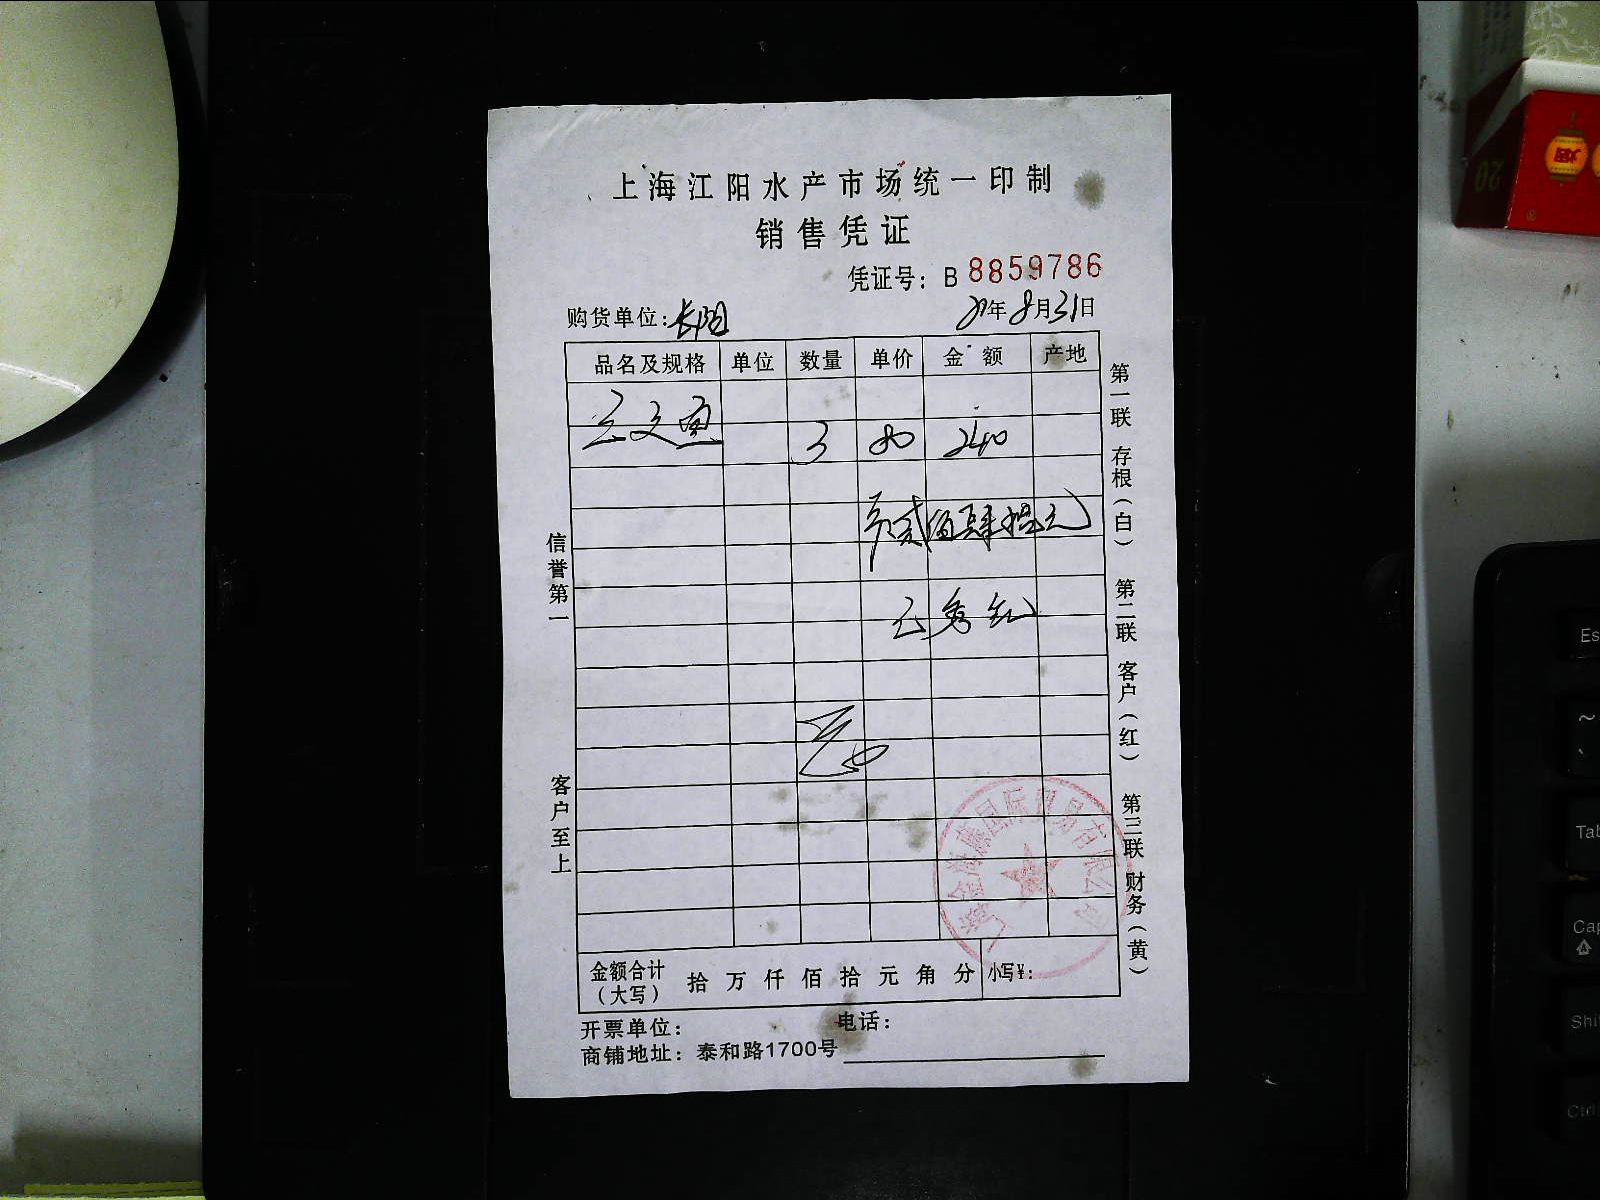 上海江阳水产市场统一印制
销售凭证
凭证号：B 8859786
购货单位：长阳 21年8月31日
品名及规格 单位 数量 单价 金额 产地
三文鱼 3 80 240
贰佰肆拾元
信誉第一
客户至上
第一联 存根（白） 第二联 客户（红） 第三联 财务（黄）
国际贸易有限公司
金额合计（大写） 拾 万 仟 佰 拾 元 角 分 小写¥：
开票单位： 电话：
商铺地址：泰和路1700号
20
烟
Es
~
Tab
Cap
Shi
Ctrl